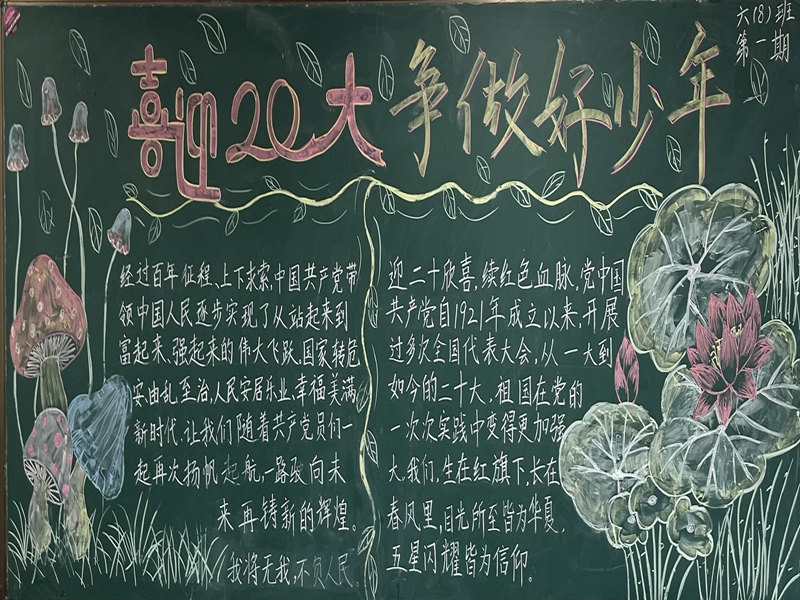 六(8)班
第一期
喜迎20大 争做好少年
经过百年征程、上下求索,中国共产党带
领中国人民逐步实现了从站起来到
富起来、强起来的伟大飞跃,国家转危
安由乱至治,人民安居乐业,幸福美满
新时代,让我们随着共产党员们一
起再次扬帆起航,一路驶向未
来再铸新的辉煌。
我将无我,不负人民
迎二十欣喜,续红色血脉,党中国
共产党自1921年成立以来,开展
过多次全国代表大会,从一大到
如今的二十大,祖国在党的
一次次实践中变得更加强
大。我们,生在红旗下,长在
春风里,目光所至皆为华夏,
五星闪耀皆为信仰。